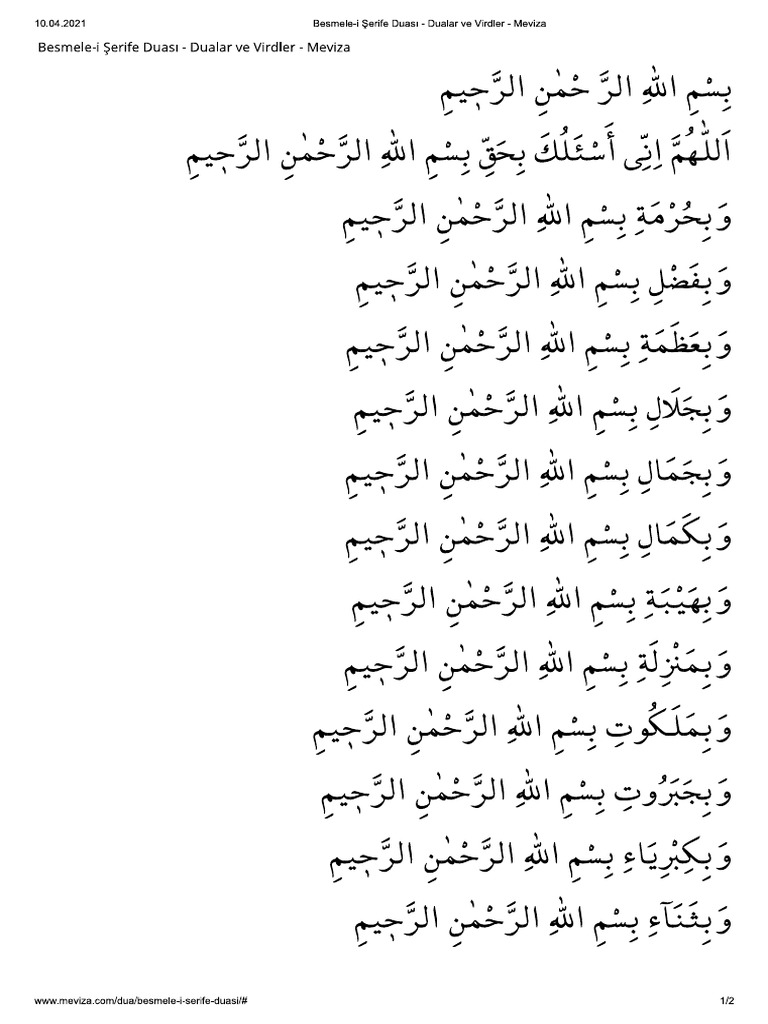 10.04.2021 Besmele-i Şerife Duası - Dualar ve Virdler - Meviza
Besmele-i Şerife Duası - Dualar ve Virdler - Meviza
بِسْمِ اللهِ الرَّ حْمٰنِ الرَّحِيمِ
اَللّٰهُمَّ اِنِّى أَسْئَلُكَ بِحَقِّ بِسْمِ اللهِ الرَّحْمٰنِ الرَّحِيمِ
وَبِحُرْمَةِ بِسْمِ اللهِ الرَّحْمٰنِ الرَّحِيمِ
وَبِفَضْلِ بِسْمِ اللهِ الرَّحْمٰنِ الرَّحِيمِ
وَبِعَظَمَةِ بِسْمِ اللهِ الرَّحْمٰنِ الرَّحِيمِ
وَبِجَلَالِ بِسْمِ اللهِ الرَّحْمٰنِ الرَّحِيمِ
وَبِجَمَالِ بِسْمِ اللهِ الرَّحْمٰنِ الرَّحِيمِ
وَبِكَمَالِ بِسْمِ اللهِ الرَّحْمٰنِ الرَّحِيمِ
وَبِهَيْبَةِ بِسْمِ اللهِ الرَّحْمٰنِ الرَّحِيمِ
وَبِمَنْزِلَةِ بِسْمِ اللهِ الرَّحْمٰنِ الرَّحِيمِ
وَبِمَلَكُوتِ بِسْمِ اللهِ الرَّحْمٰنِ الرَّحِيمِ
وَبِجَبَرُوتِ بِسْمِ اللهِ الرَّحْمٰنِ الرَّحِيمِ
وَبِكِبْرِيَاءِ بِسْمِ اللهِ الرَّحْمٰنِ الرَّحِيمِ
وَبِثَنَآءِ بِسْمِ اللهِ الرَّحْمٰنِ الرَّحِيمِ
www.meviza.com/dua/besmele-i-serife-duasi/# 1/2